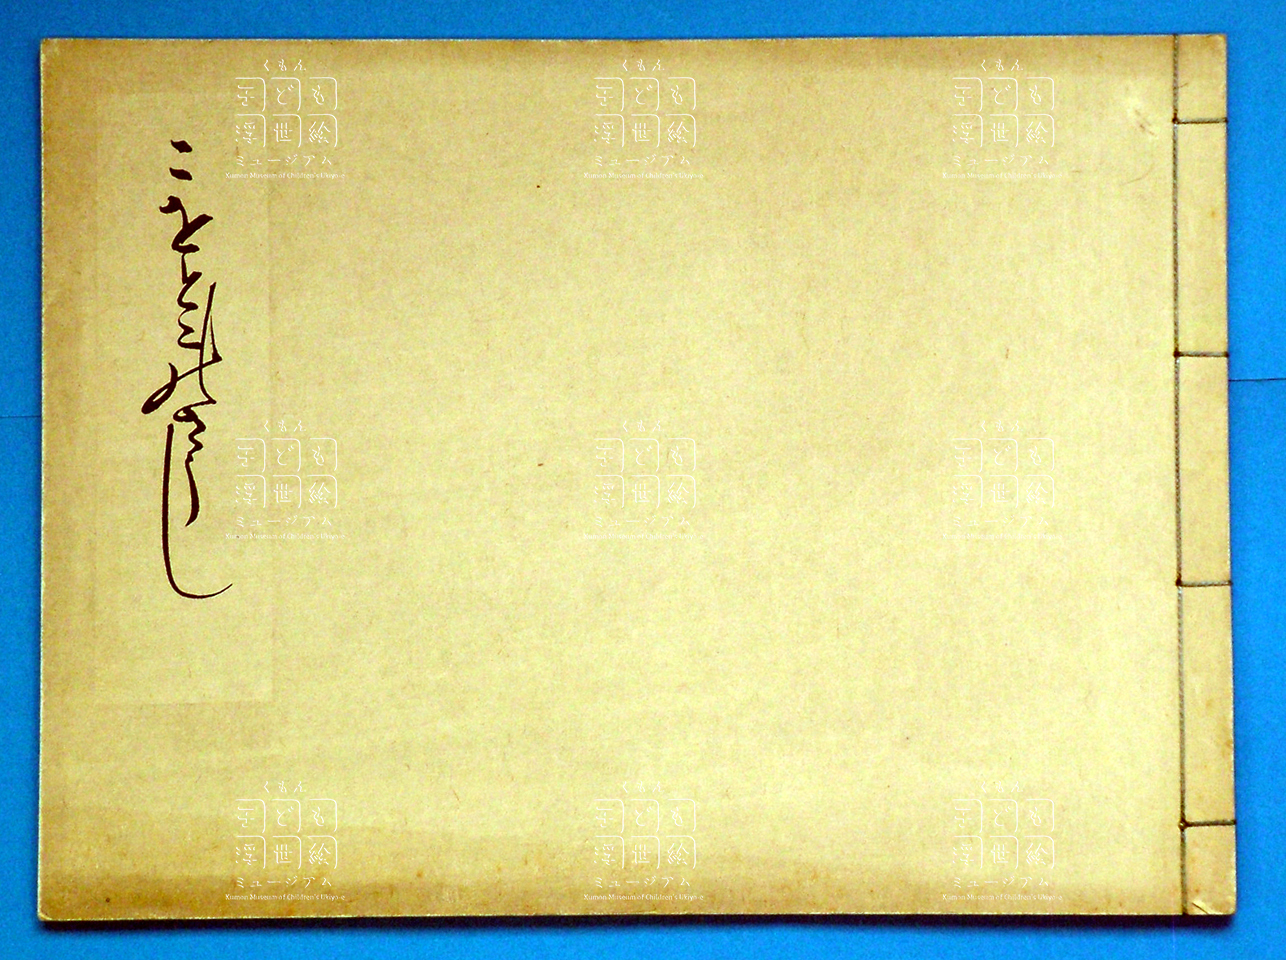 こをとこのさうし
くもん
子ども
浮世絵
ミュージアム
Kumon Museum of Children's Ukiyo-e
くもん
子ども
浮世絵
ミュージアム
Kumon Museum of Children's Ukiyo-e
くもん
子ども
浮世絵
ミュージアム
Kumon Museum of Children's Ukiyo-e
くもん
子ども
浮世絵
ミュージアム
Kumon Museum of Children's Ukiyo-e
くもん
子ども
浮世絵
ミュージアム
Kumon Museum of Children's Ukiyo-e
くもん
子ども
浮世絵
ミュージアム
Kumon Museum of Children's Ukiyo-e
くもん
子ども
浮世絵
ミュージアム
Kumon Museum of Children's Ukiyo-e
くもん
子ども
浮世絵
ミュージアム
Kumon Museum of Children's Ukiyo-e
くもん
子ども
浮世絵
ミュージアム
Kumon Museum of Children's Ukiyo-e